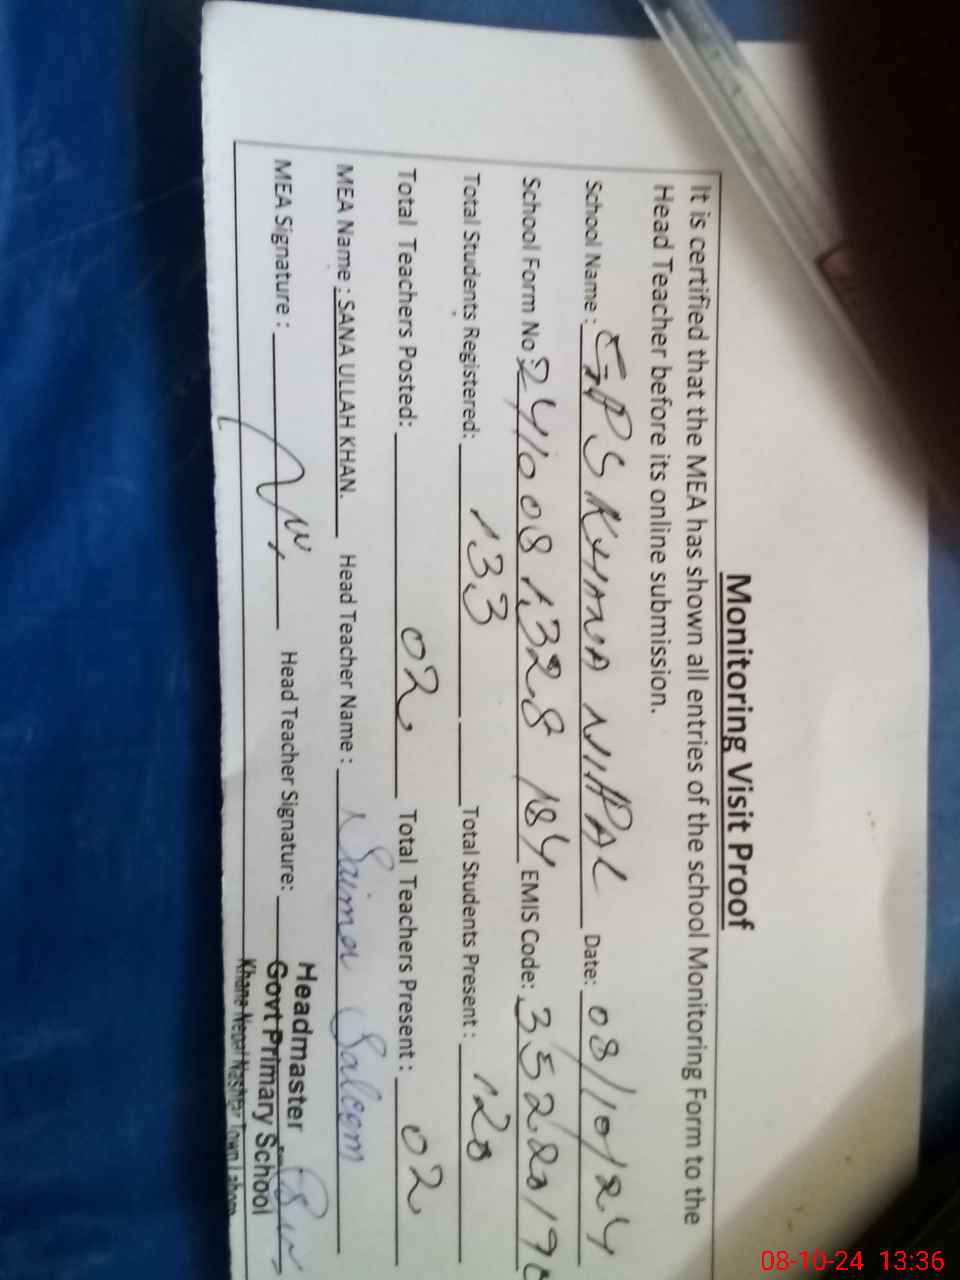 Monitoring Visit Proof
It is certified that the MEA has shown all entries of the school Monitoring Form to the
Head Teacher before its online submission.
School Name : GPS KHANA NIPAL Date: 08/10/24
School Form No : 241008 1328 184 EMIS Code: 3528017
Total Students Registered: 133 Total Students Present : 120
Total Teachers Posted: 02 Total Teachers Present : 02
MEA Name : SANA ULLAH KHAN. Head Teacher Name : Saima Saleem
MEA Signature : Head Teacher Signature:
Headmaster
Govt Primary School
Khana Nepal Nashter Town Lahore
08-10-24 13:36